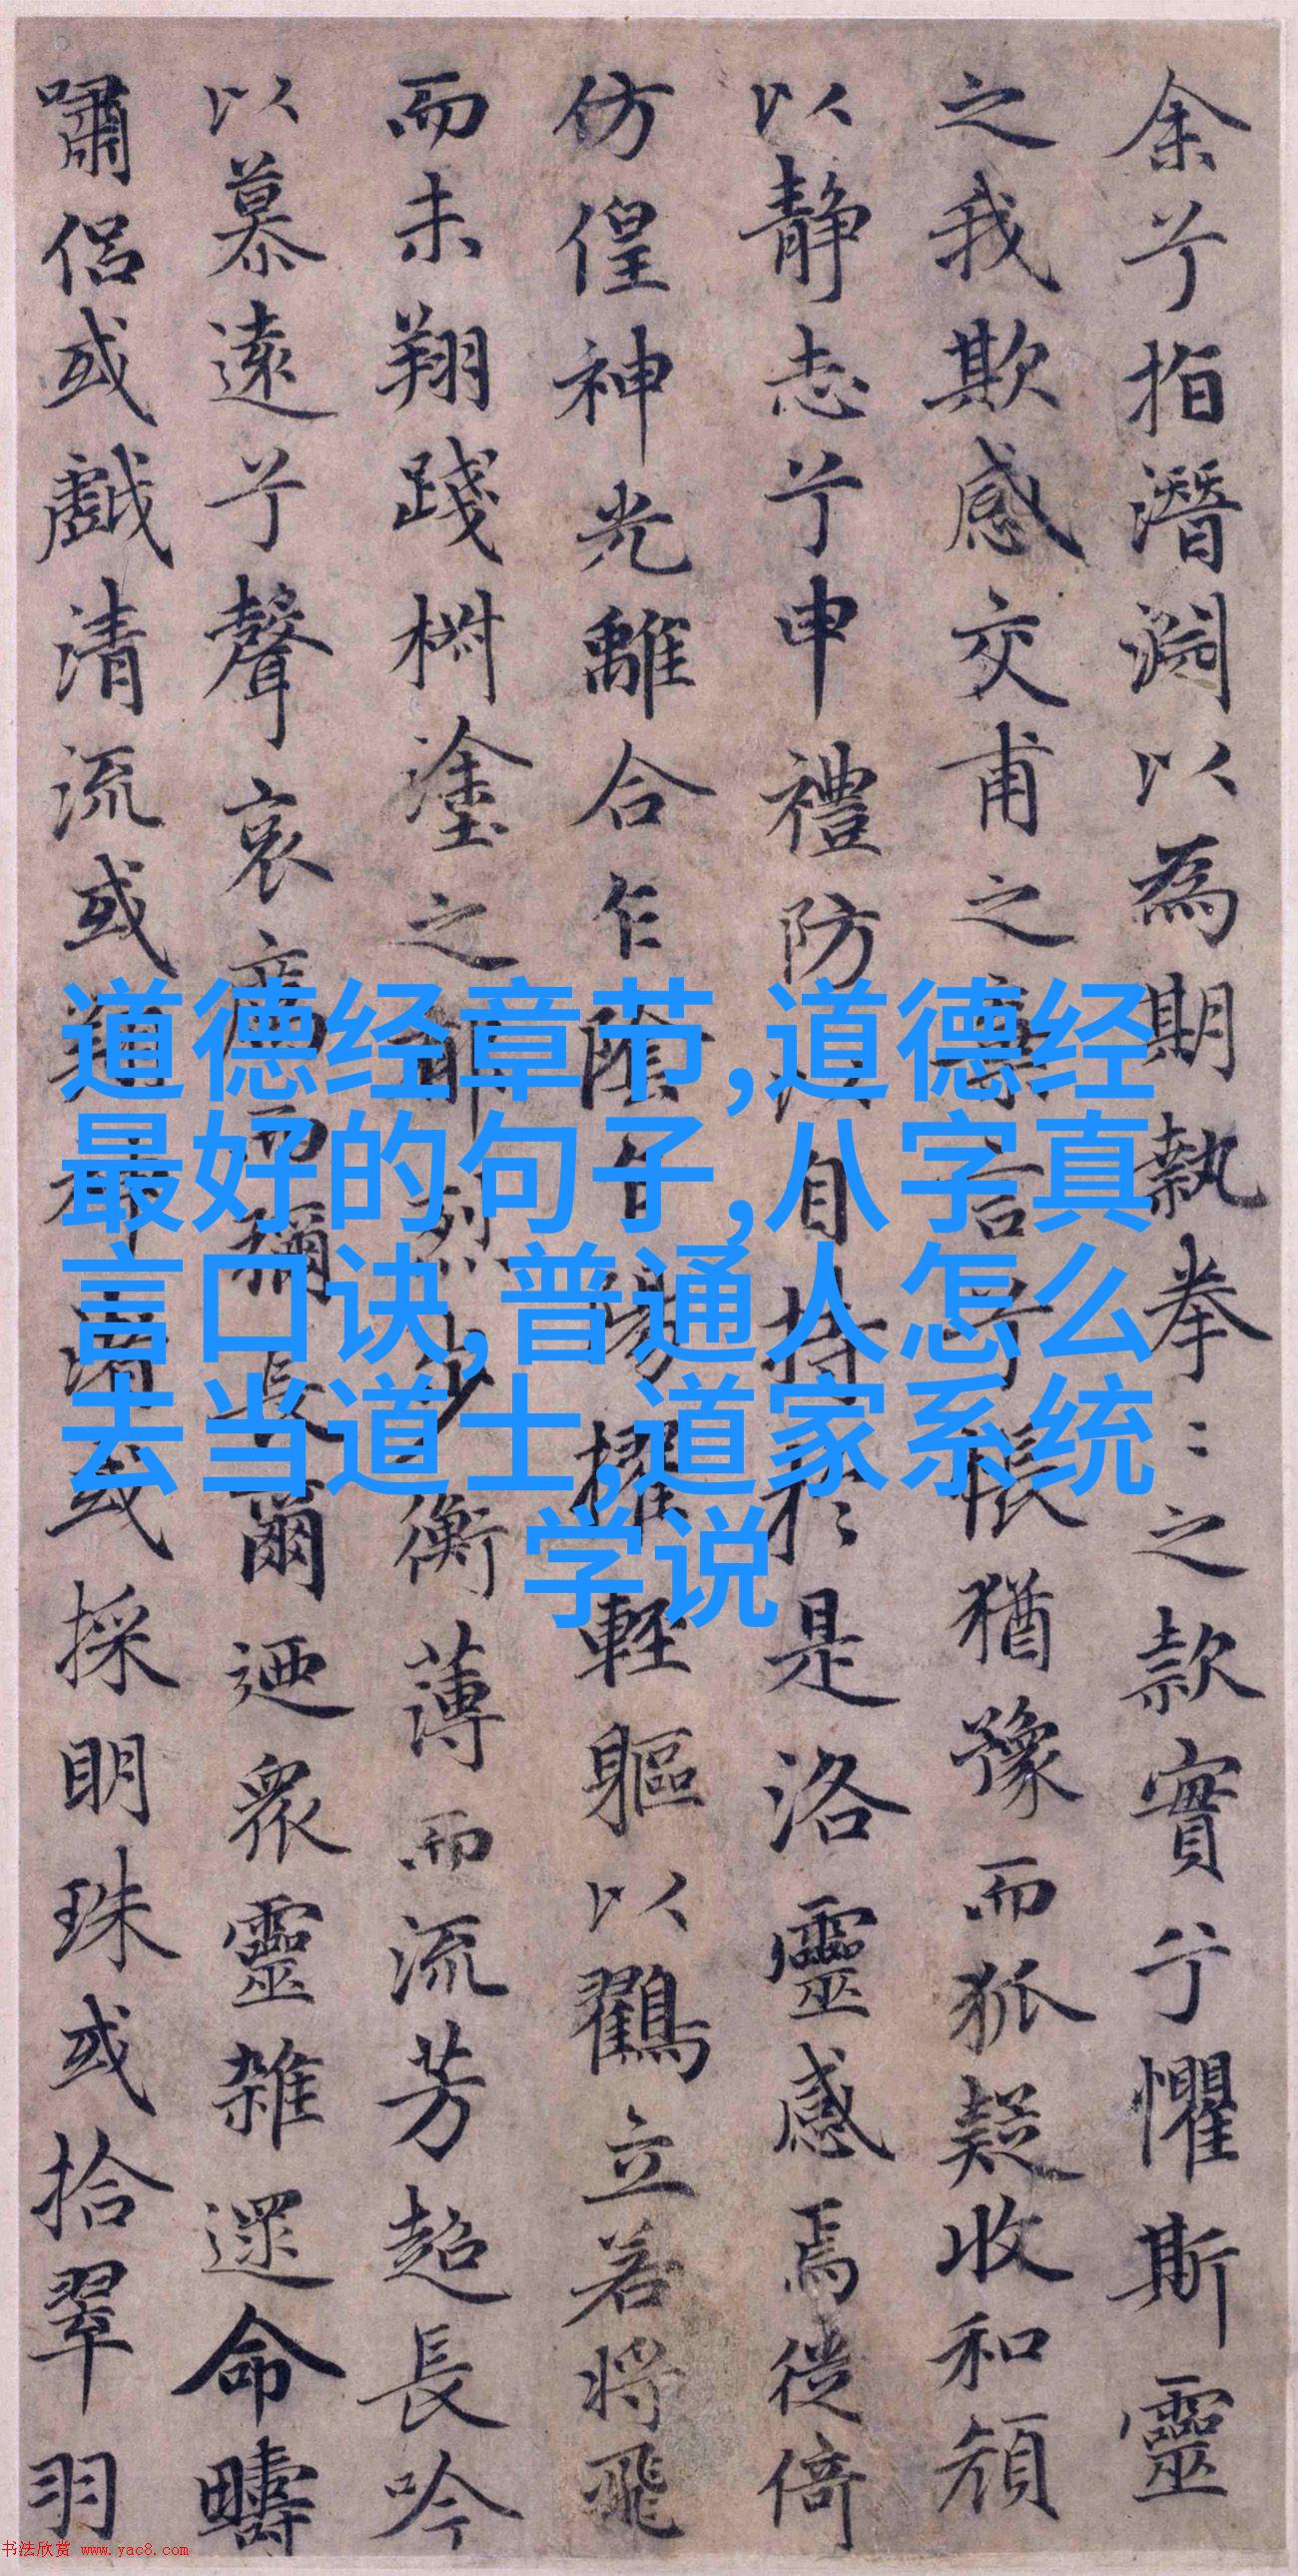 余兮指潛淵以為期執拳〻之款實兮懼斯靈
之我欺感交甫之棄言兮悵猶豫而狐疑收和顏
以靜志兮申禮防以自持於是洛靈感焉徙倚
仿偟神光離合乍陰乍陽擢輕軀以鶴立若將飛
而未翔踐椒塗之郁烈步衡薄而流芳超長吟
以慕遠兮聲哀厲而彌長爾迺眾靈雜遝命疇
嘯侶或戲清流或翔神渚或採明珠或拾翠羽
道德经章节,道德经
最好的句子,八字真
言口诀,普通人怎么
去当道士,道家系统
学说
书法欣赏 www.yac8.com